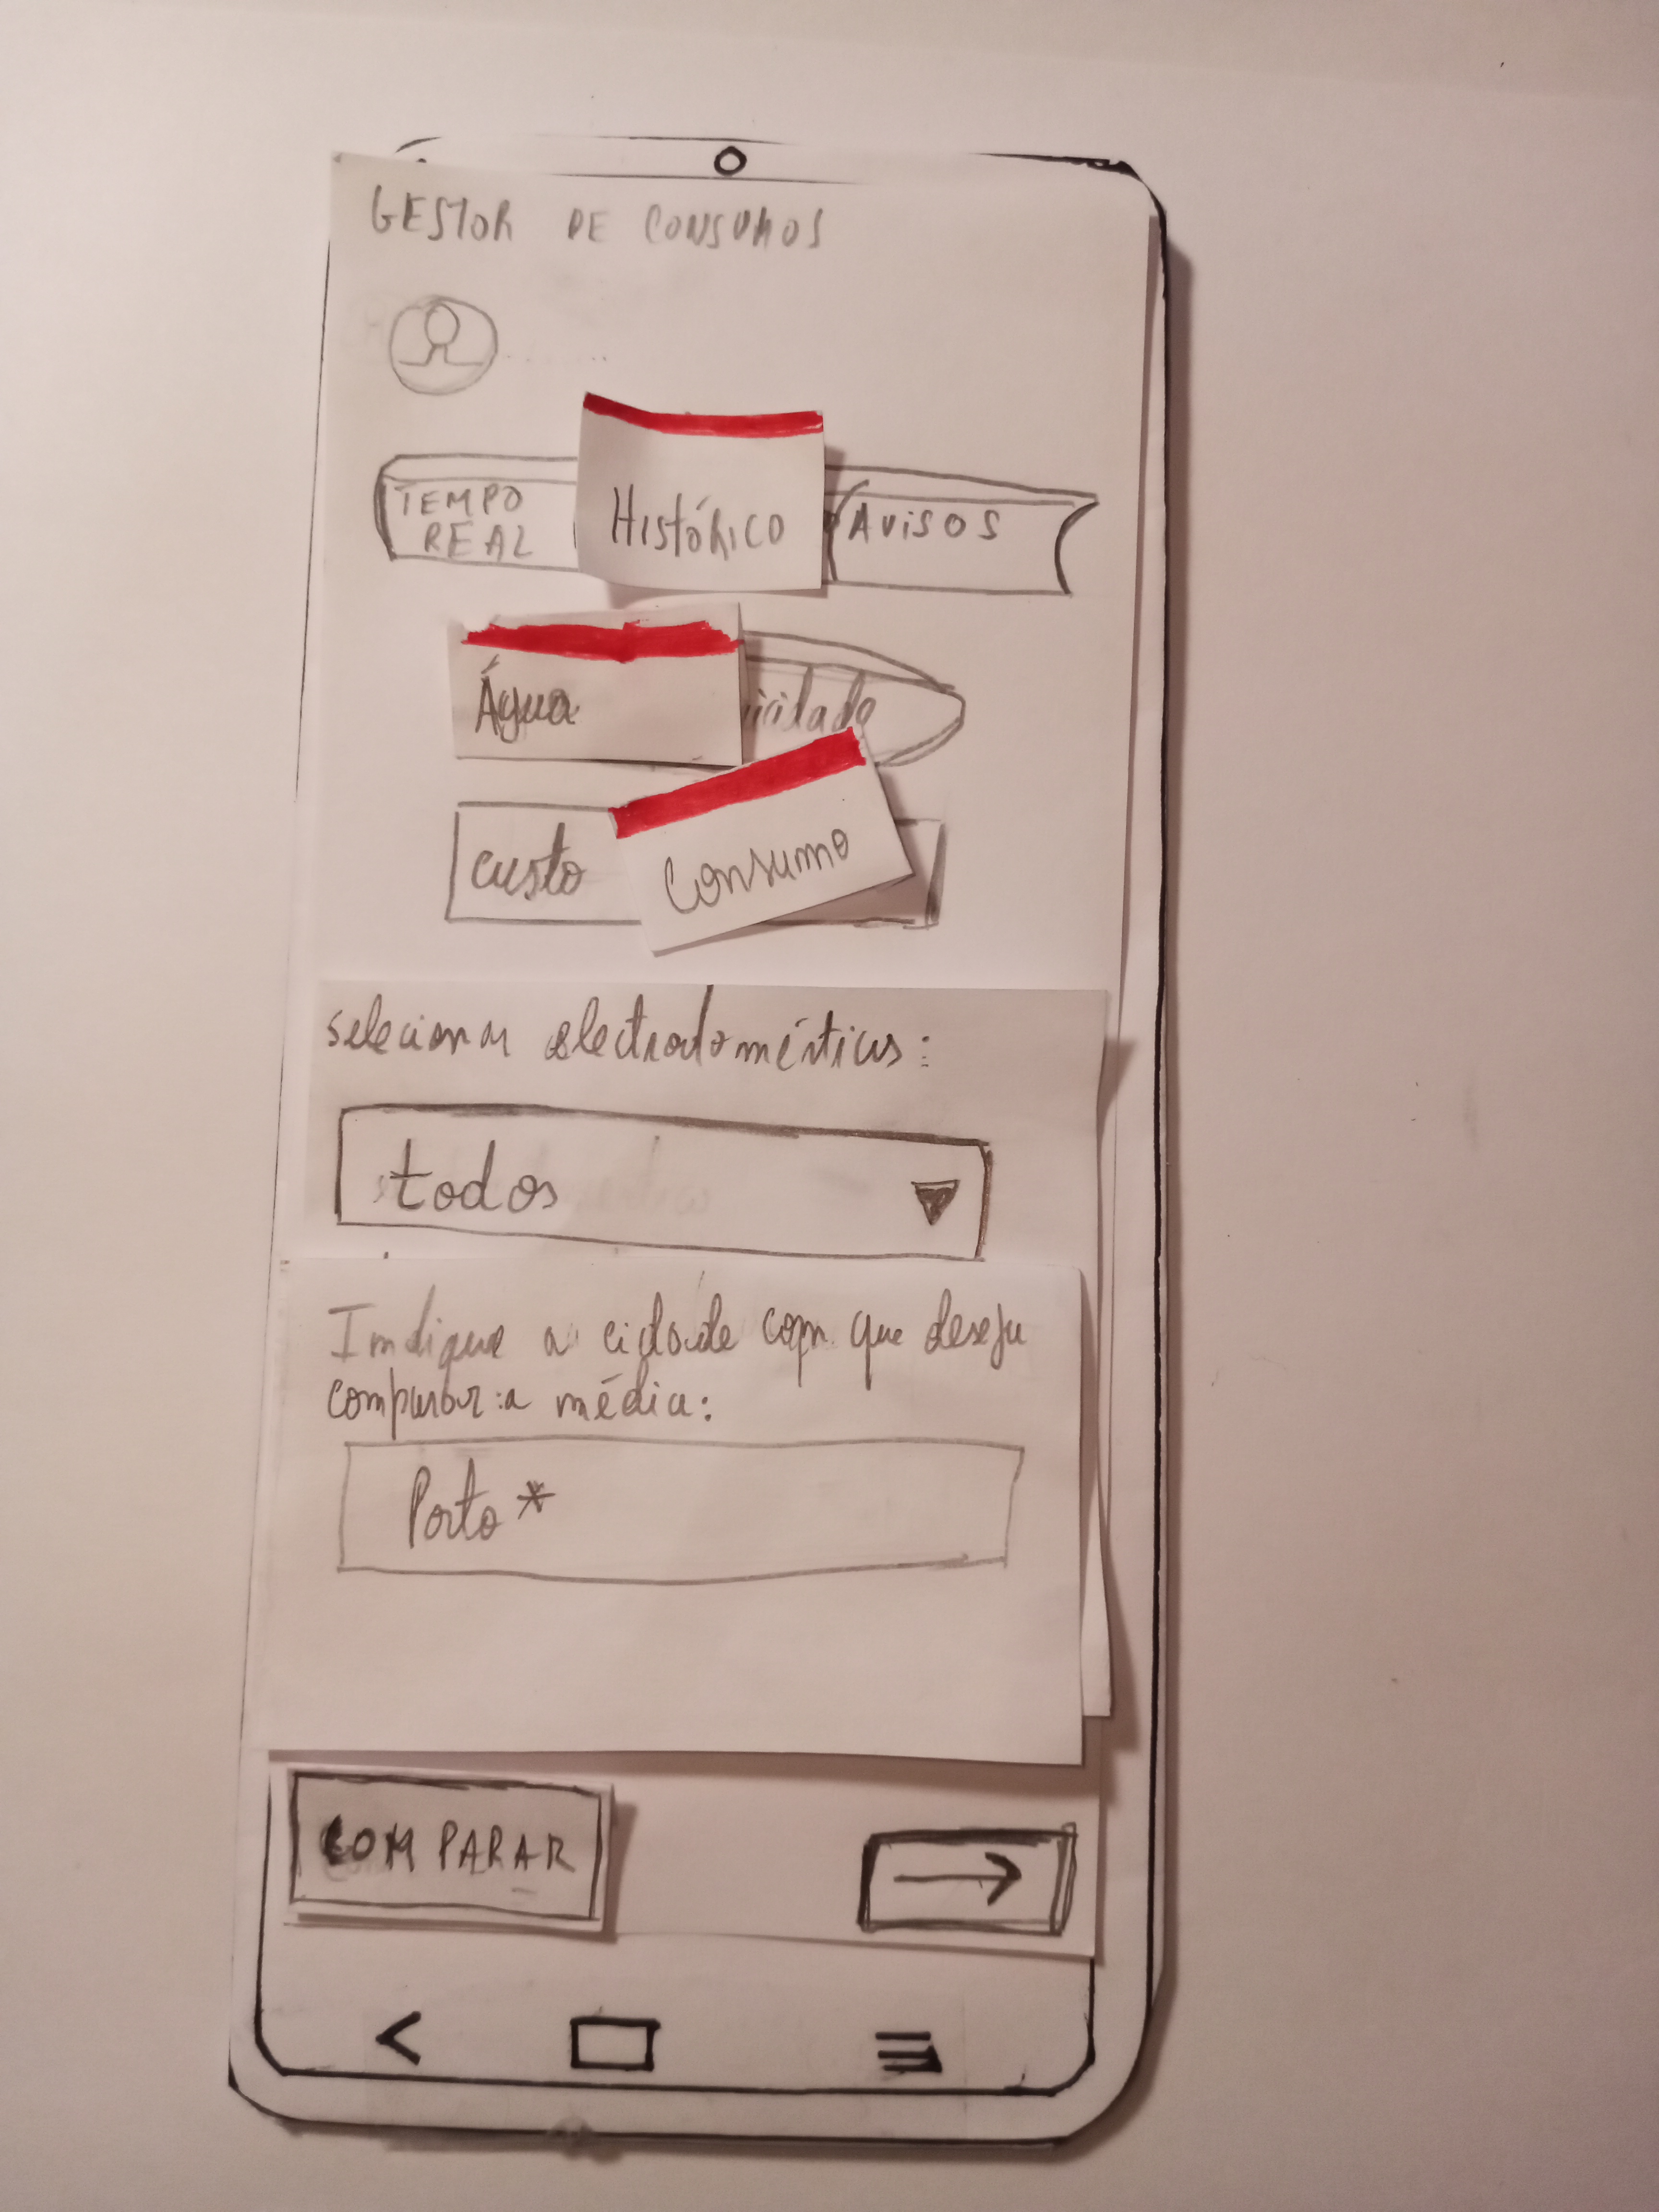 GESTOR DE CONSUMOS
TEMPO
REAL
Histórico
AVISOS
Água
icidade
custo
Consumo
selecionar electrodomésticos:
todos
Indique a cidade com que deseja
comparar a média:
Porto *
COMPARAR